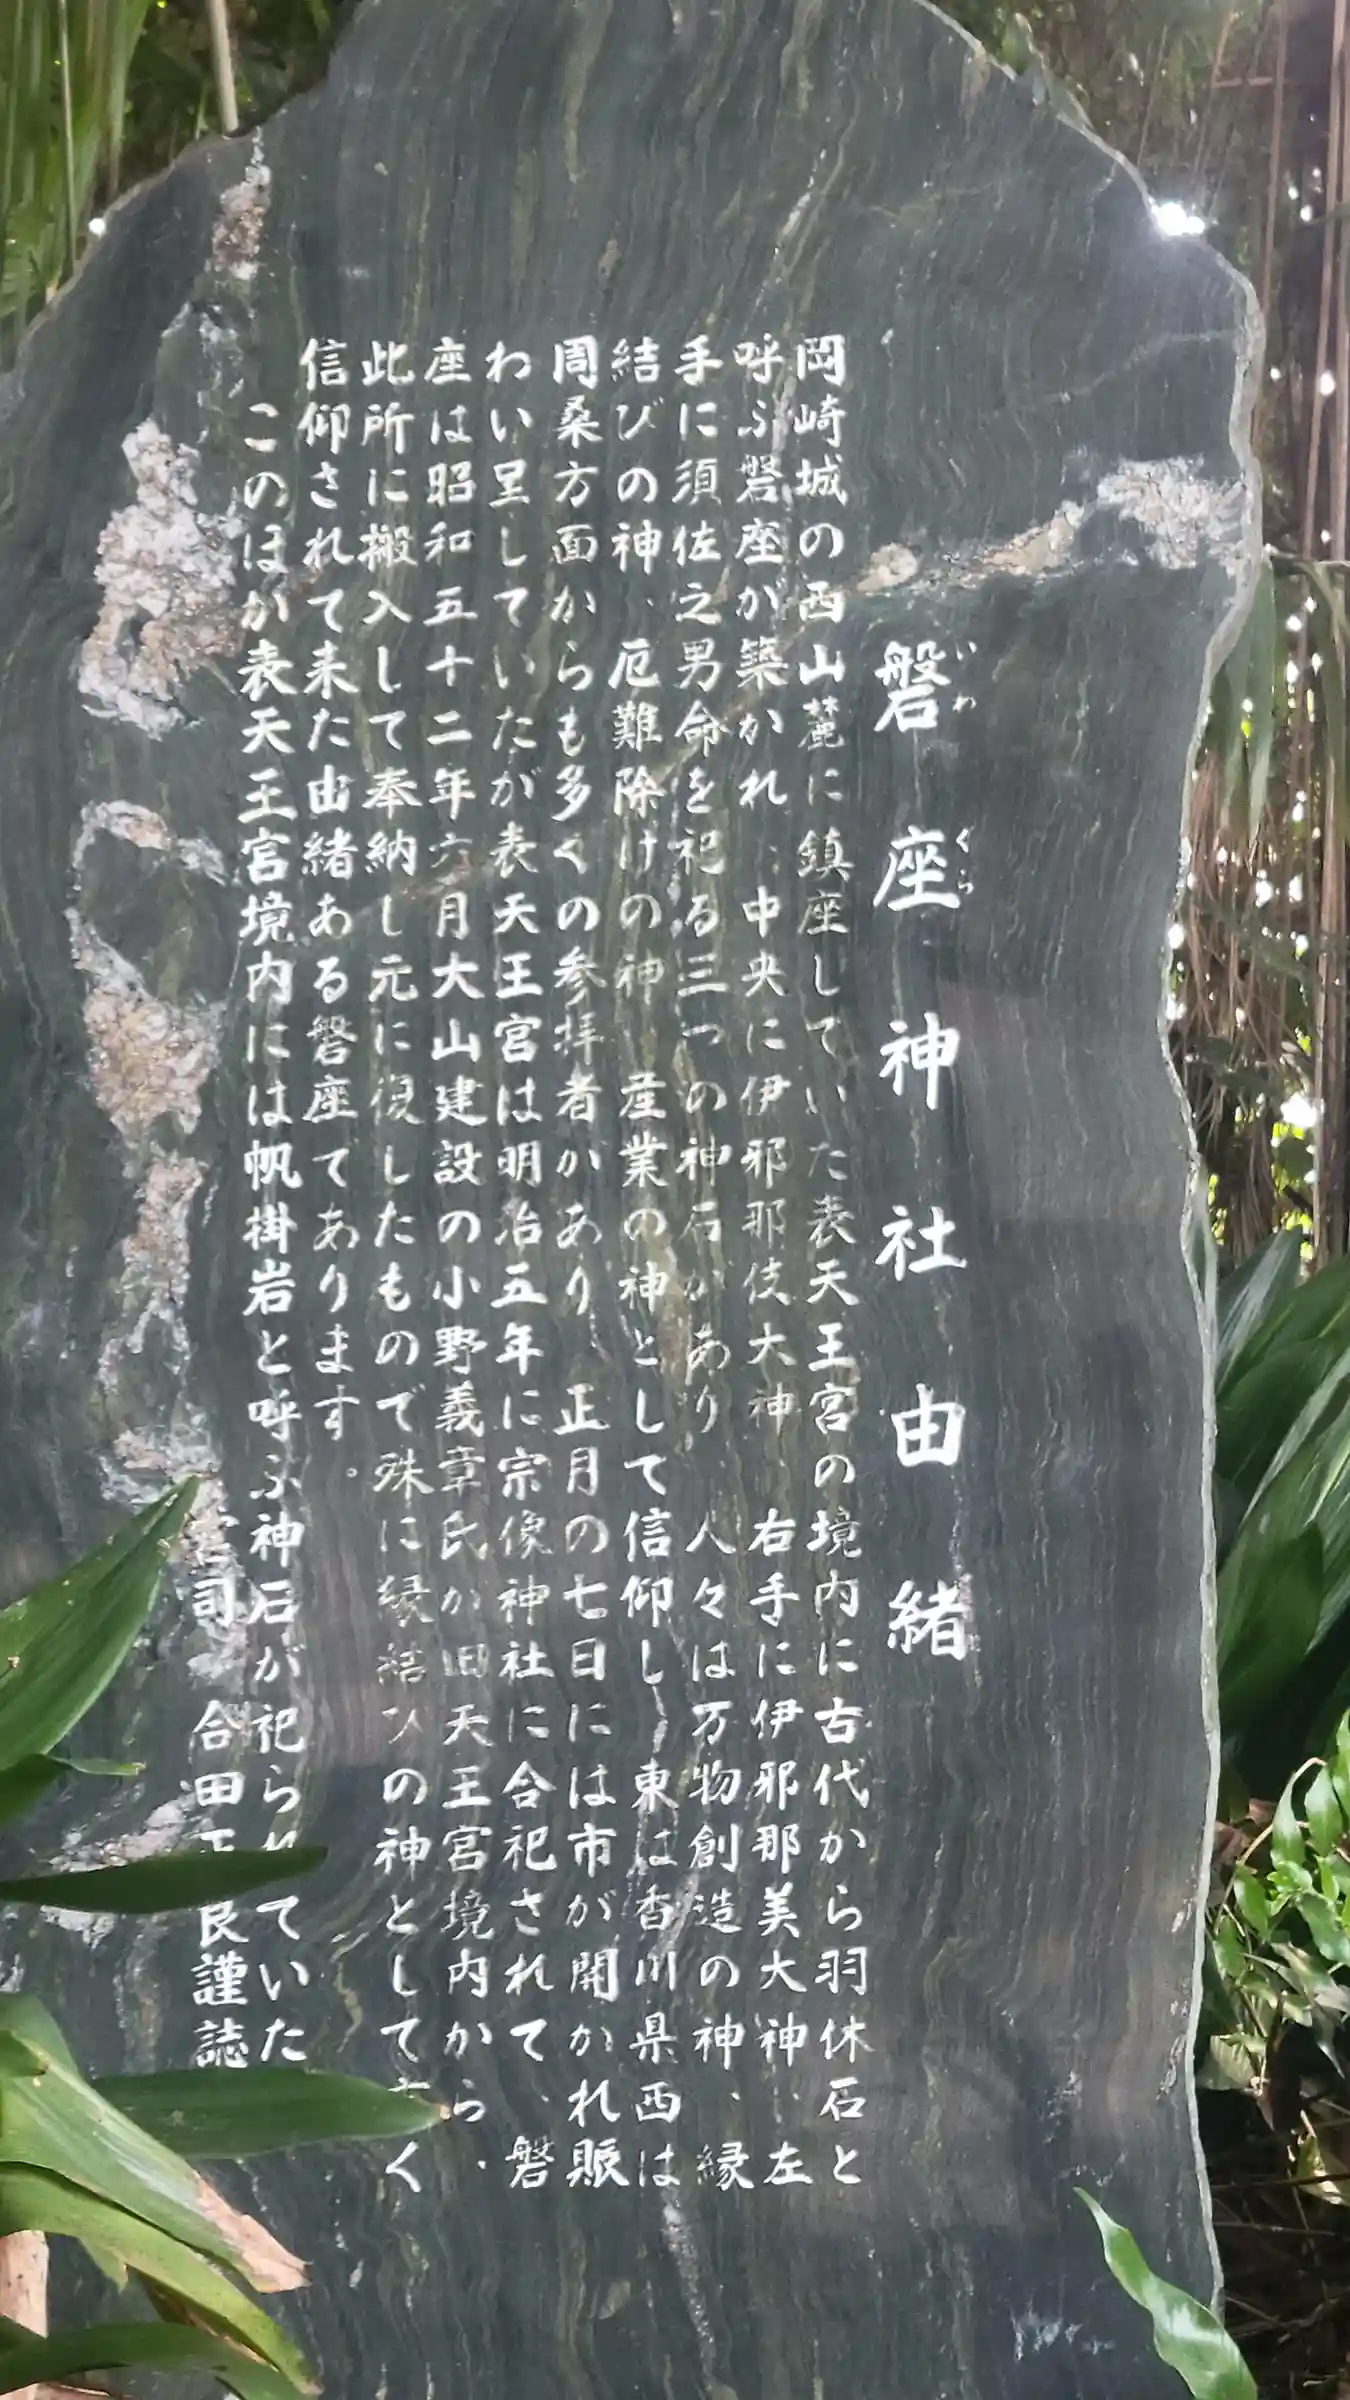 磐座神社由緒
いわくら
岡崎城の西山麓に鎮座していた表天王宮の境内に古代から羽休石と
呼ぶ磐座が築かれ、中央に伊邪那伎大神、右手に伊邪那美大神、左
手に須佐之男命を祀る三つの神石があり、人々は万物創造の神、縁
結びの神、厄難除けの神、産業の神として信仰し、東は香川県西は
周桑方面からも多くの参拝者があり、正月の七日には市が開かれ賑
わい呈していたが表天王宮は明治五年に宗像神社に合祀されて、磐
座は昭和五十二年六月大山建設の小野義章氏が旧天王宮境内から、
此所に搬入して奉納し元に復したもので殊に縁結びの神として く
信仰されて来た由緒ある磐座であります。
このほか表天王宮境内には帆掛岩と呼ぶ神石が祀られていた
宮司 合田正良謹誌